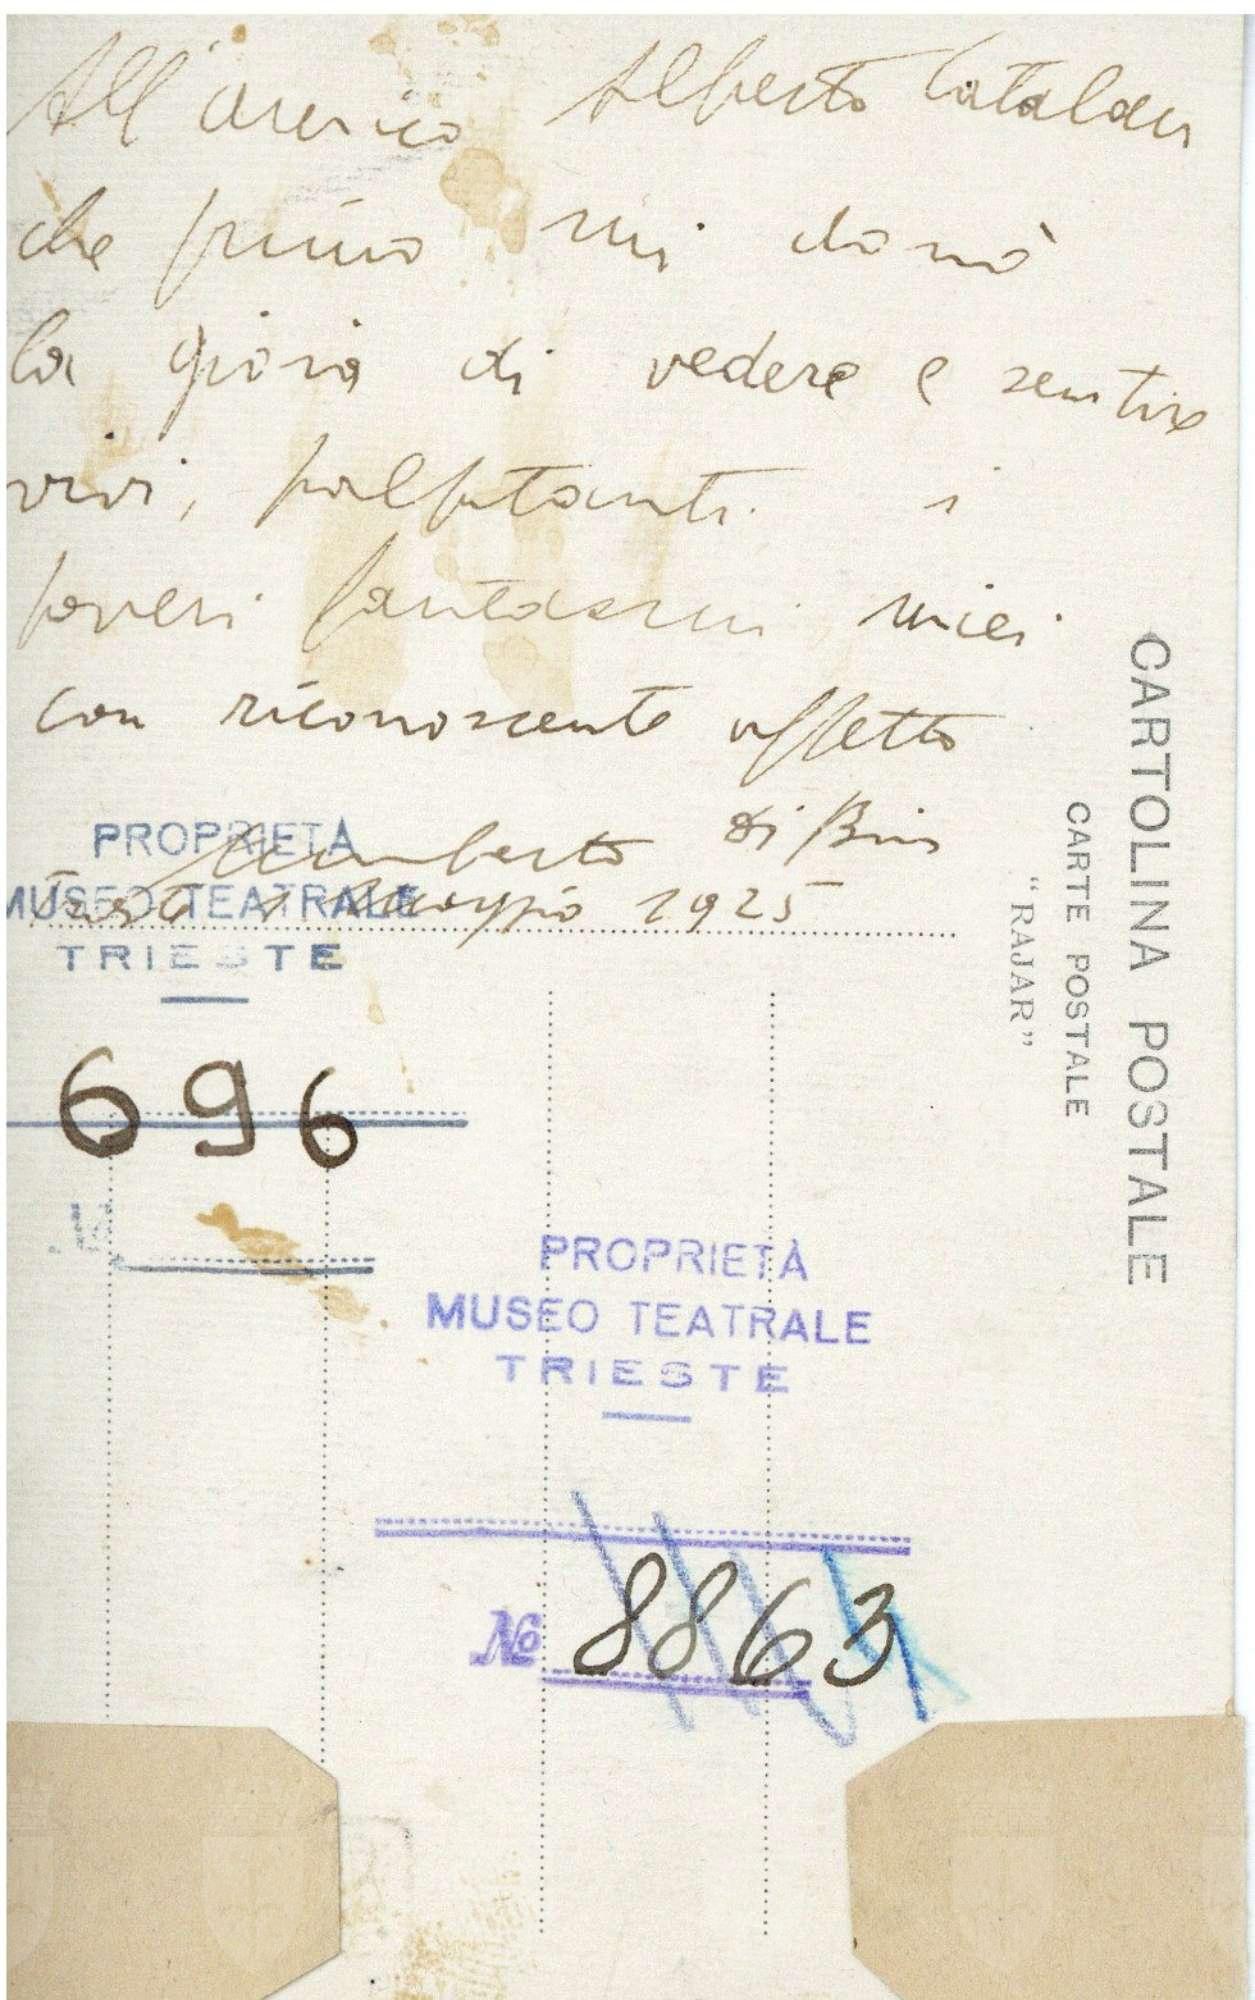 All'amico Alberto Catalan
che primo mi donò
la gioia di vedere e sentire
vivi, palpitanti i
poveri fantasmi miei
con riconoscente affetto
Umberto di Bin
Trieste 1 Maggio 1925
PROPRIETÀ
MUSEO TEATRALE
TRIESTE
696
CARTOLINA POSTALE
CARTE POSTALE
"RAJAR"
PROPRIETÀ
MUSEO TEATRALE
TRIESTE
No 8863